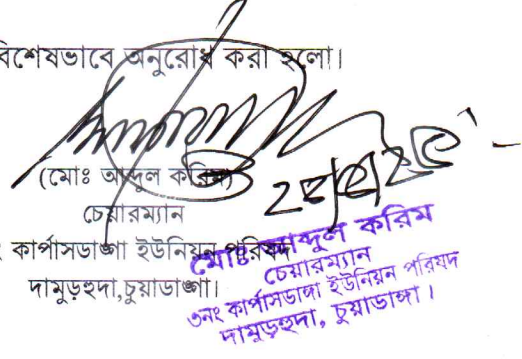 বিশেষভাবে অনুরোধ করা হলো।
(মোঃ আব্দুল করিম)
চেয়ারম্যান
নং কার্পাসডাঙ্গা ইউনিয়ন পরিষদ
দামুড়হুদা,চুয়াডাঙ্গা।
মোঃ আব্দুল করিম
চেয়ারম্যান
৩নং কার্পাসডাঙ্গা ইউনিয়ন পরিষদ
দামুড়হুদা, চুয়াডাঙ্গা।